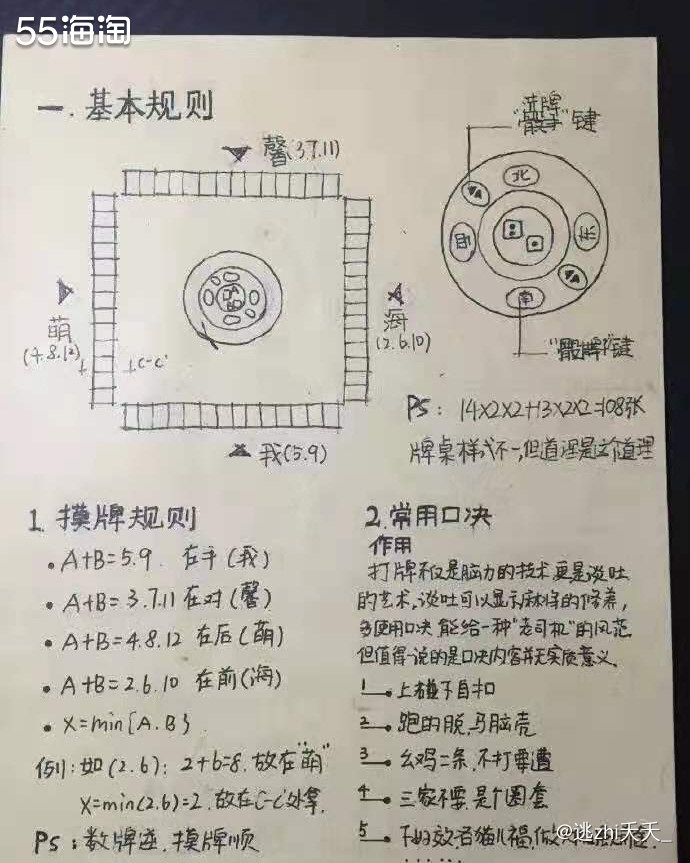 55海淘
一.基本规则
馨(3.7.11)
萌
(4.8.12)
C-C'
海
(2.6.10)
我(5.9)
洗牌
"骰子"键
北
东
南
西
"骰牌"键
PS: 14×2×2+13×2×2=108张
牌桌样式不一,但道理是这个道理
1.摸牌规则
• A+B=5.9. 在手(我)
• A+B=3.7.11 在对(馨)
• A+B=4.8.12 在后(萌)
• A+B=2.6.10 在前(海)
• X=min{A.B}
例:如(2.6): 2+6=8.放在"萌"
X=min(2.6)=2.放在C-C'处拿.
PS:数牌逆.摸牌顺
2.常用口决
作用
打牌不仅是脑力的技术更是谈吐
的艺术,谈吐可以显示麻将的修养,
多使用口决能给一种"老司机"的风范
但值得一说的是口决内容并无实质意义.
1.上碰下自扣
2.跑的脱,马脑壳
3.幺鸡二条,不打要遭
4.三家不要,是个圈套
5.
……
@逃zhi夭夭_